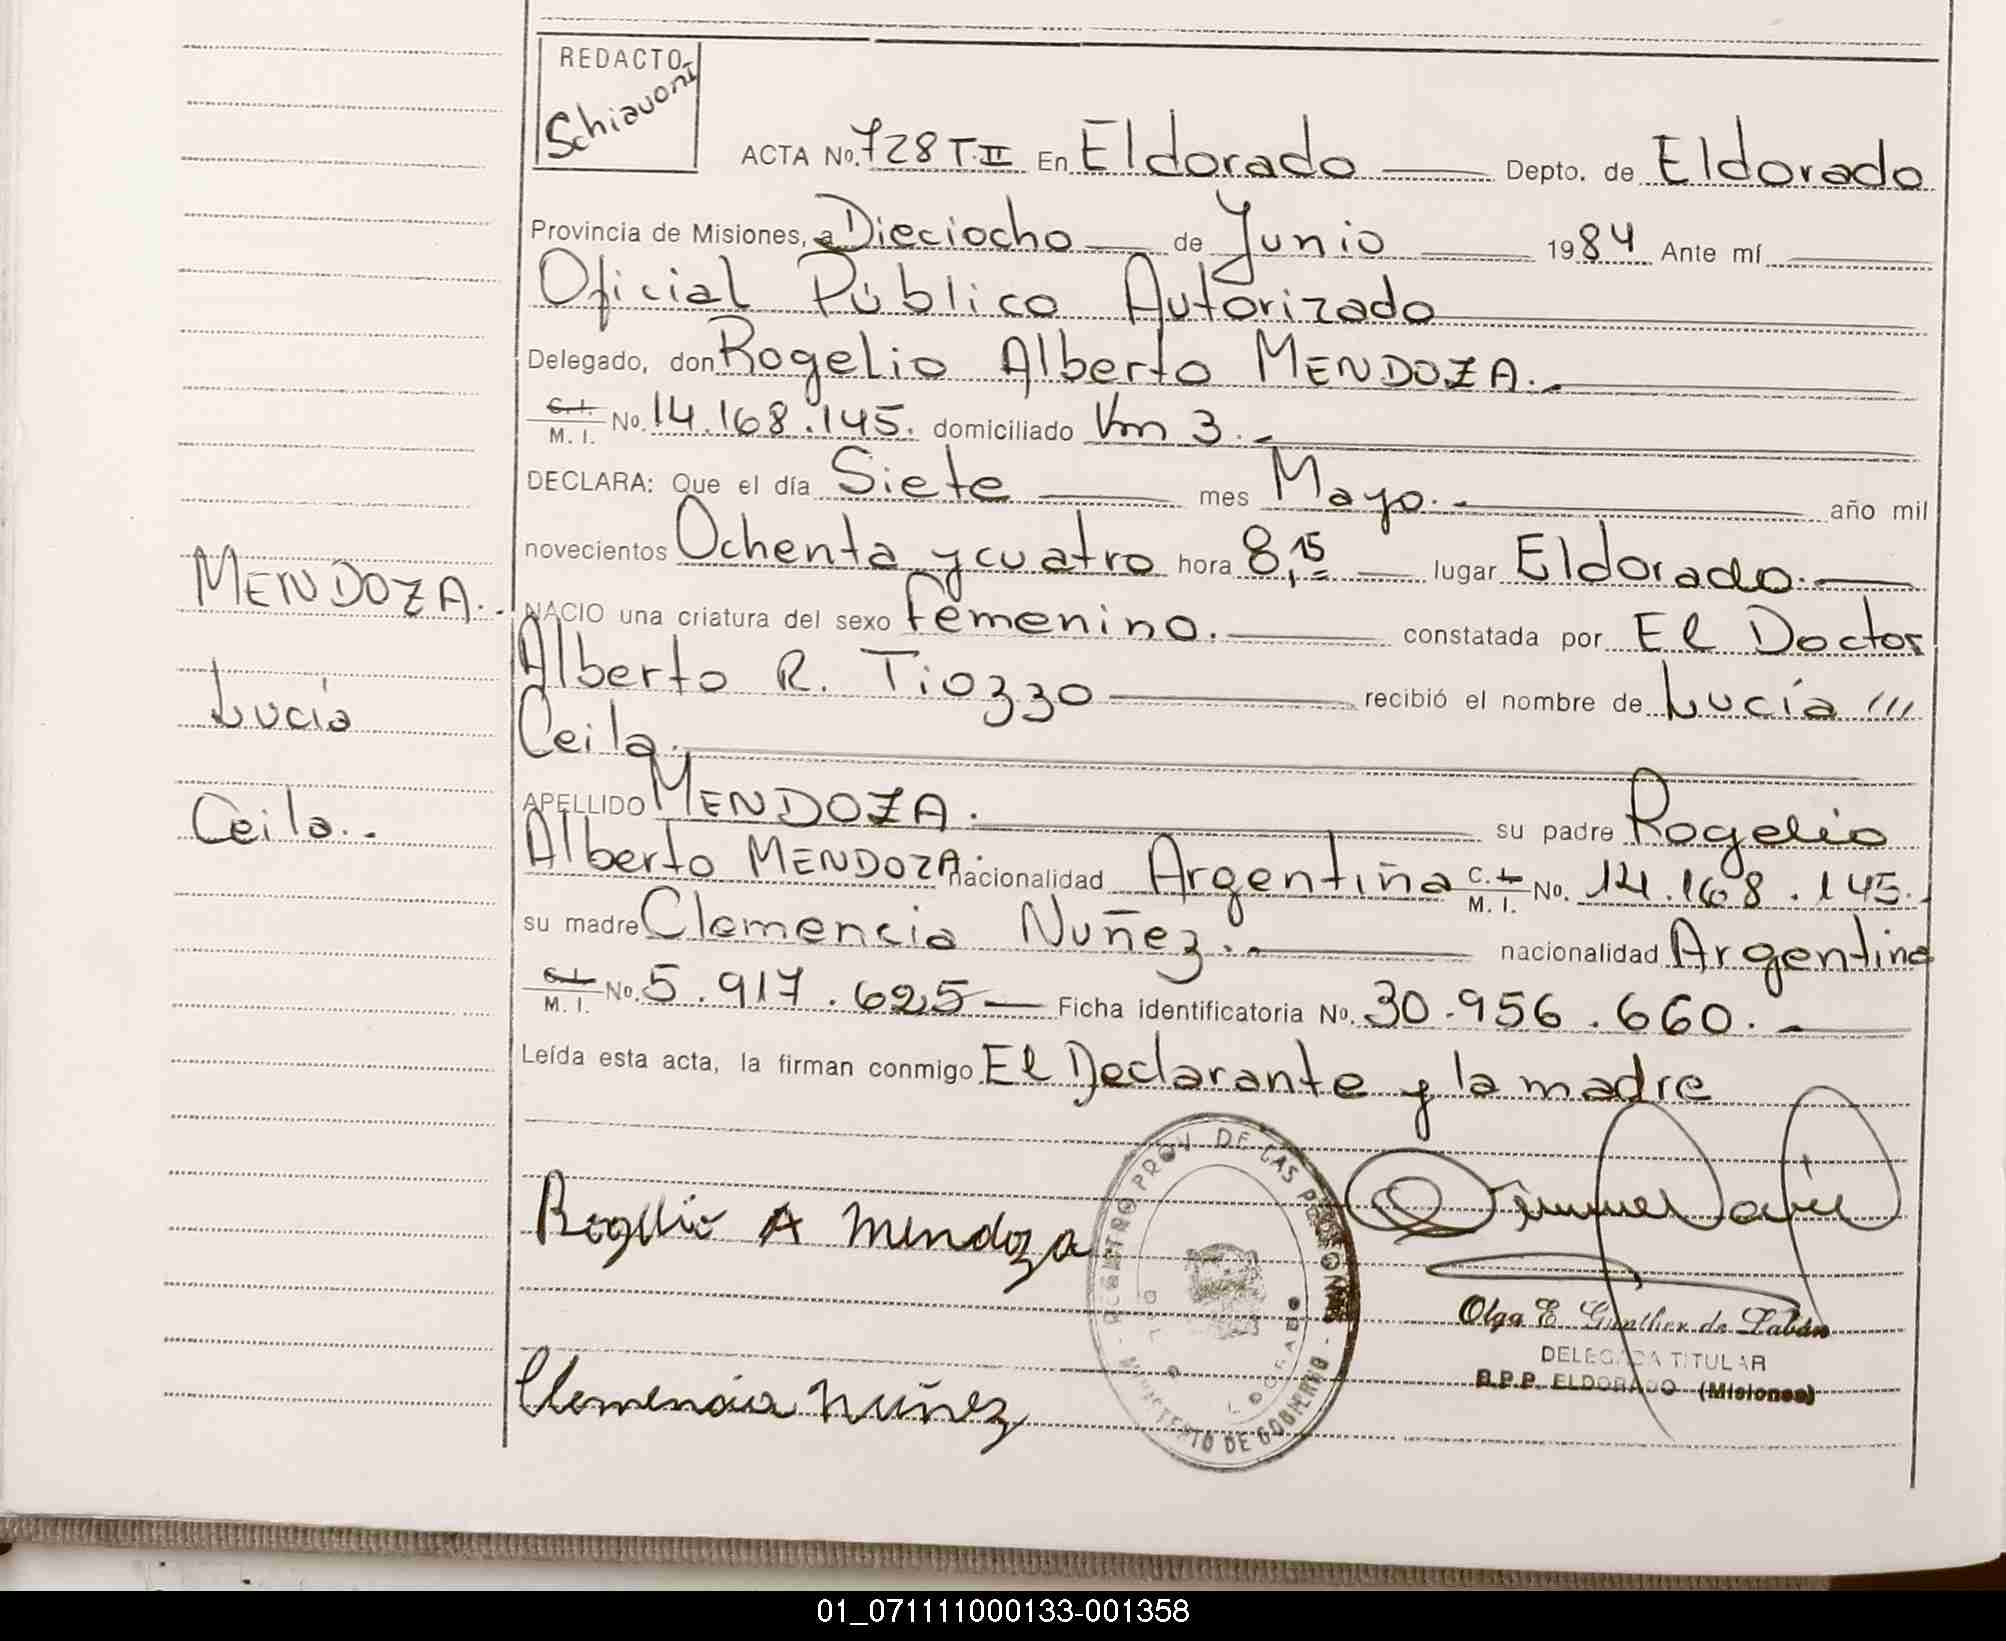 REDACTO
Schiavoni
ACTA No. 728 T.II En Eldorado Depto. de Eldorado
Provincia de Misiones, a Dieciocho de Junio 1984 Ante mí
Oficial Público Autorizado
Delegado, don Rogelio Alberto MENDOZA.
C.I. M. I. No. 14.168.145. domiciliado Km 3.
DECLARA: Que el día Siete mes Mayo. año mil
novecientos Ochenta y cuatro hora 8,15 lugar Eldorado.
NACIO una criatura del sexo femenino. constatada por El Doctor
Alberto R. Tiozzo recibió el nombre de Lucía
Ceila.
APELLIDO MENDOZA. su padre Rogelio
Alberto MENDOZA nacionalidad Argentiña C.I. M. I. No. 14.168.145.
su madre Clemencia Nuñez. nacionalidad Argentina
C.I. M. I. No. 5.917.625 Ficha identificatoria No. 30.956.660.
Leída esta acta, la firman conmigo El Declarante y la madre
MENDOZA.
Lucía
Ceila.
Rogelio A Mendoza
Clemencia Nuñez
REGISTRO PROV. DE LAS PERSONAS
MINISTERIO DE GOBIERNO
Olga E. Günther de Labán
DELEGADA TITULAR
R.P.P. ELDORADO (Misiones)
01_071111000133-001358